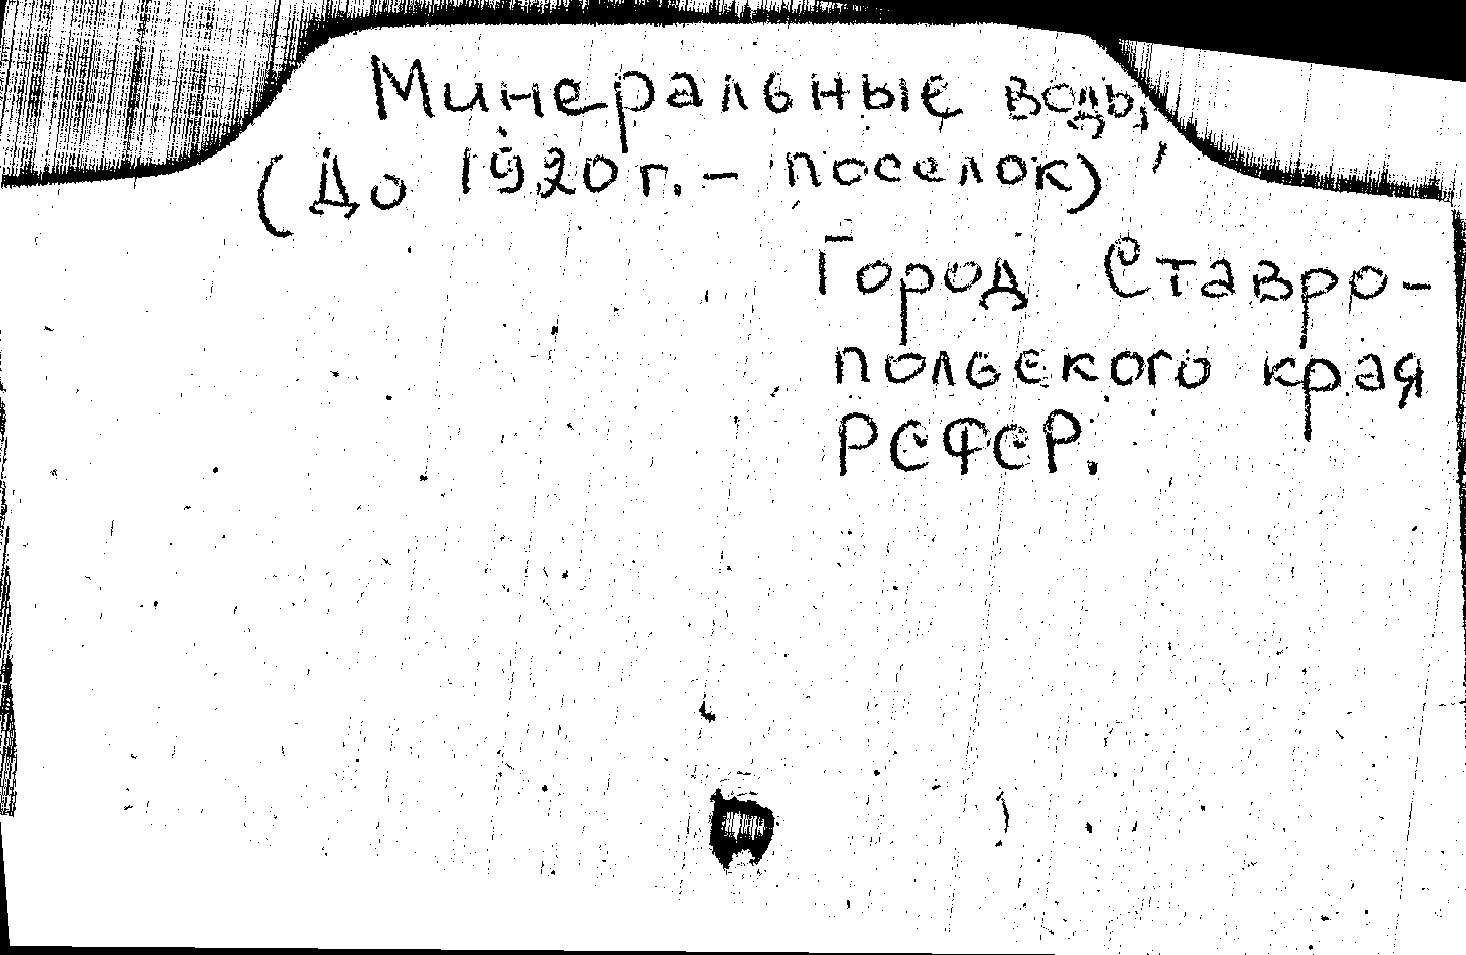 Минеральные воды,
(До 1920 г. – поселок)
Город Ставро-
польского края
РСФСР.